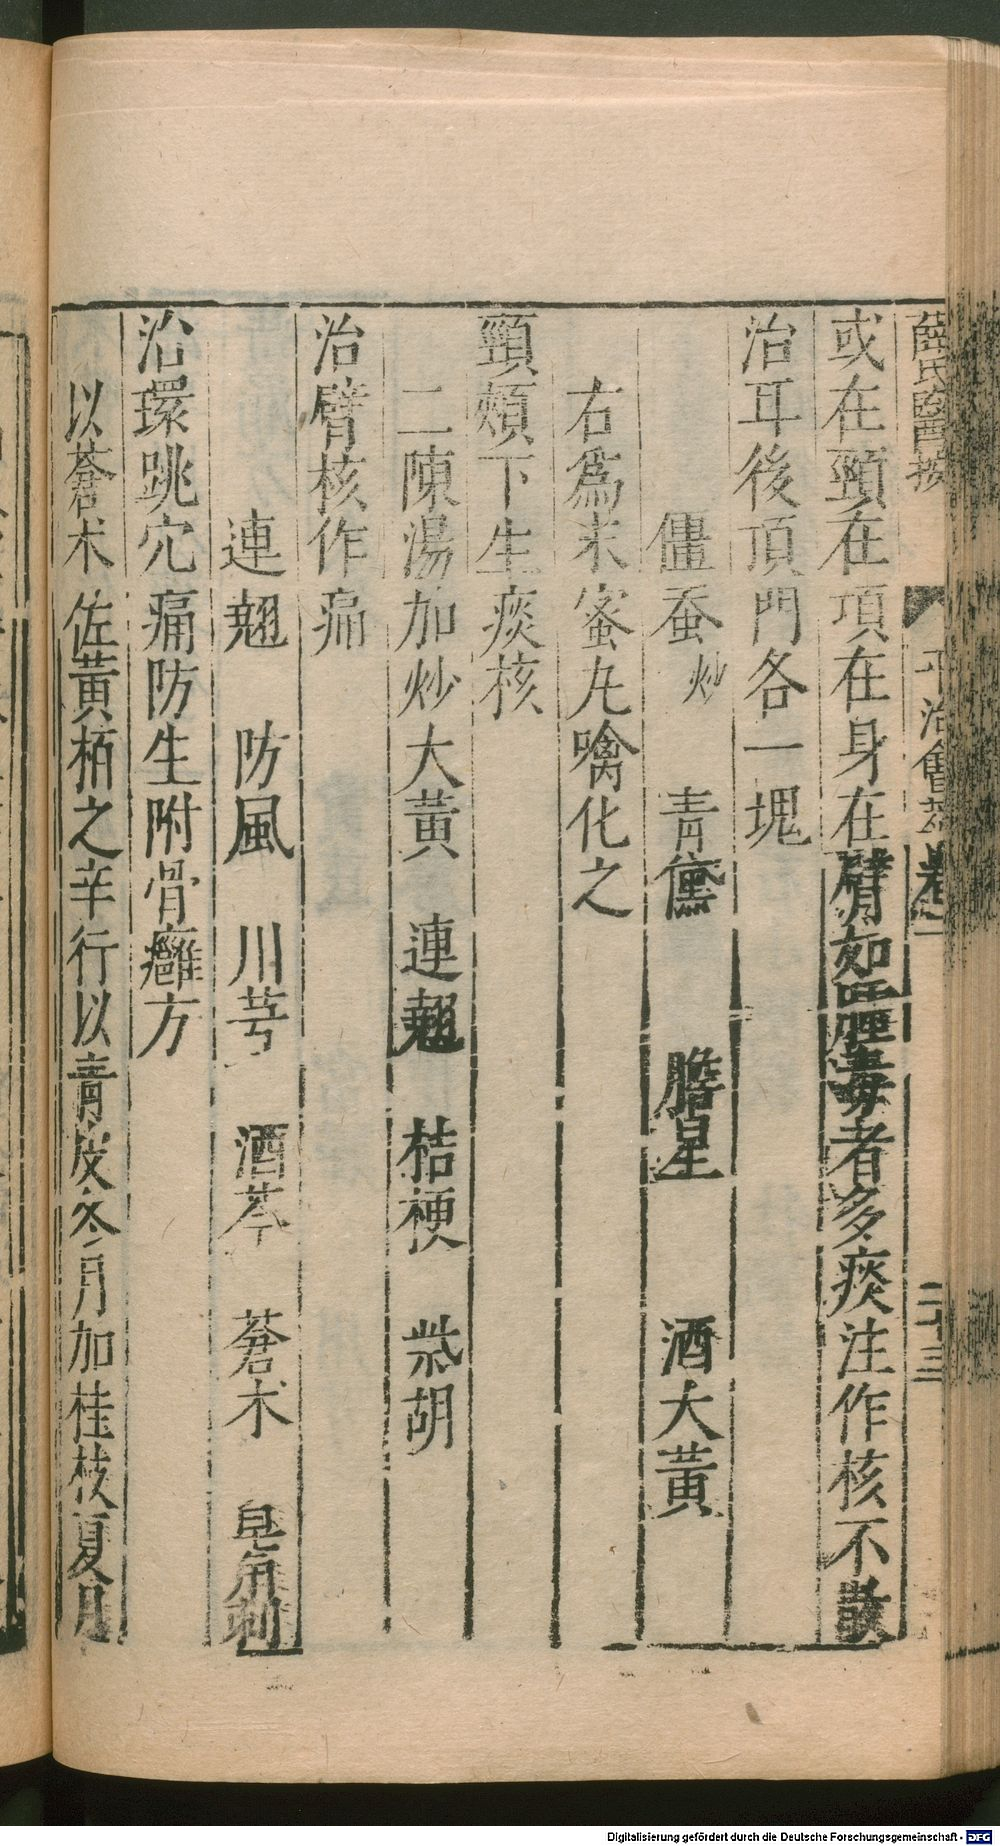 薛氏醫按 平治會萃卷二 二十三
或在頸在項在身在臂如腫毒者多痰注作核不散
治耳後頂門各一塊
僵蚕炒 青黛 膽星 酒大黃
右爲末蜜丸噙化之
頸頰下生痰核
二陳湯加炒大黃 連翹 桔梗 柴胡
治臂核作痛
連翹 防風 川芎 酒芩 蒼术 皂角刺
治環跳穴痛防生附骨癰方
以蒼术佐黃栢之辛行以青皮冬月加桂枝夏月
Digitalisierung gefördert durch die Deutsche Forschungsgemeinschaft - DFG